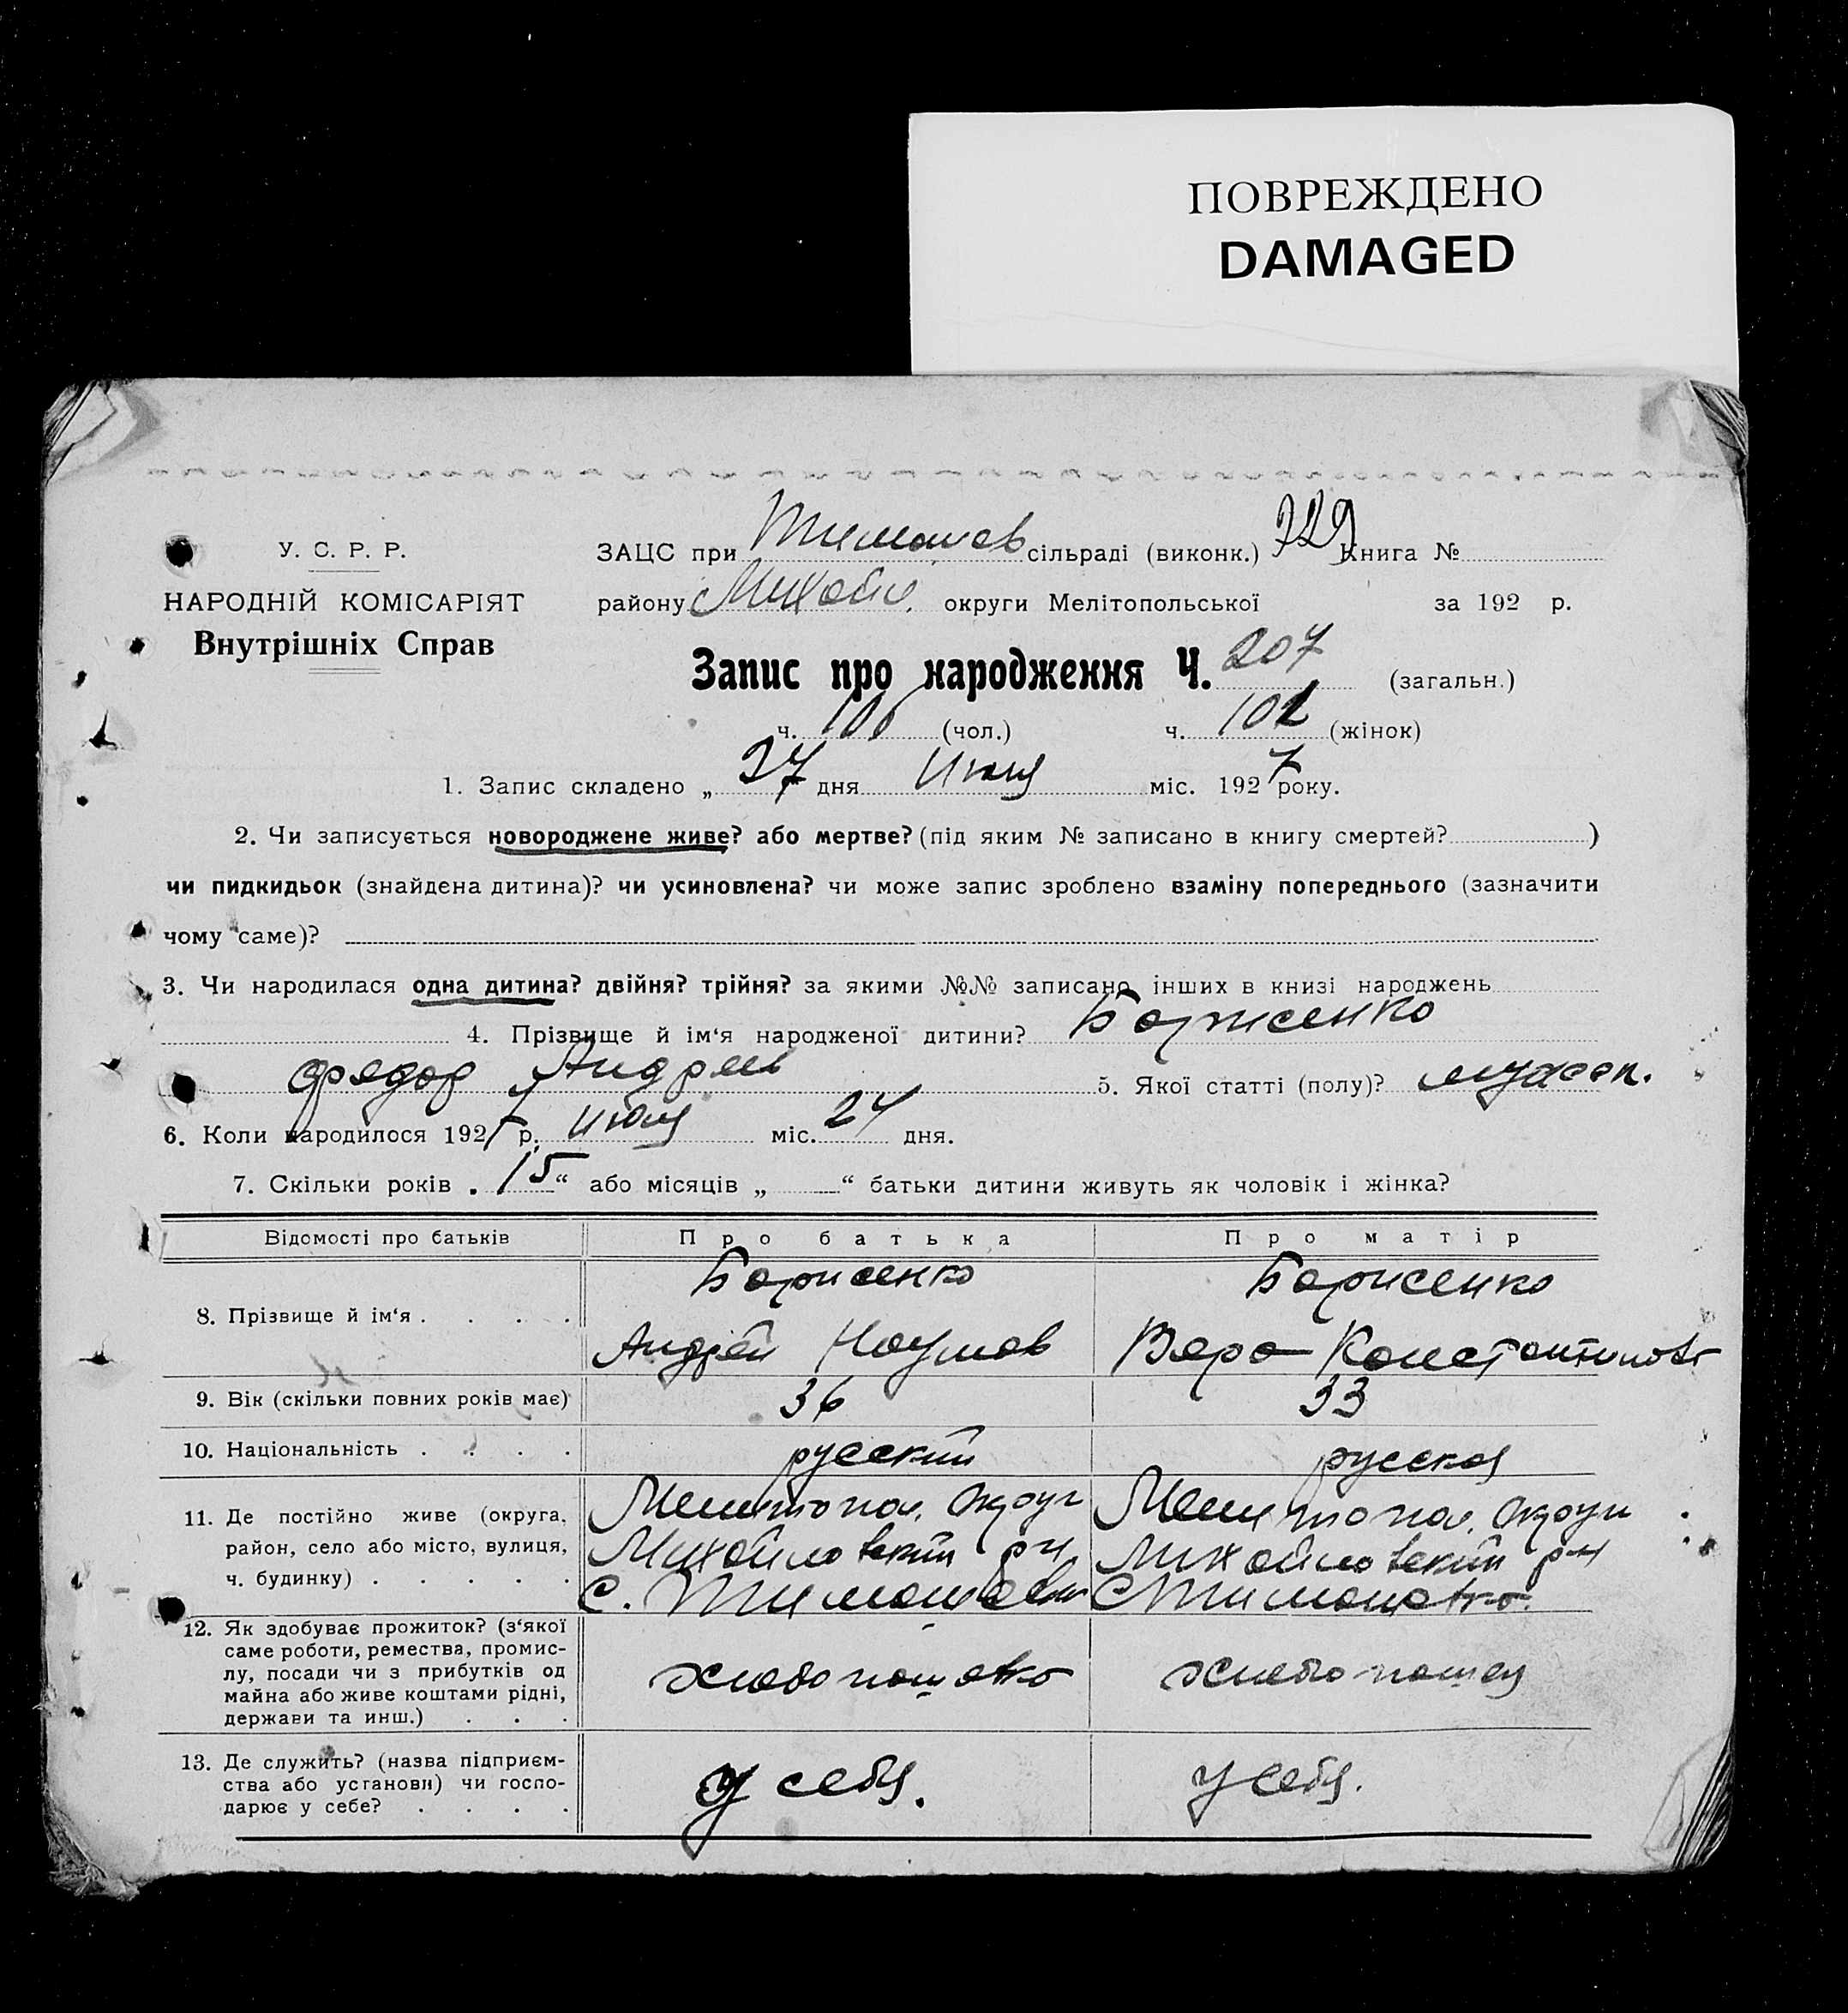 ПОВРЕЖДЕНО
DAMAGED
У. С. Р. Р.
НАРОДНІЙ КОМІСАРІЯТ
Внутрішніх Справ
ЗАЦС при Тимошев сільраді (виконк.) 729 Книга №
району Михайл. округи Мелітопольської за 192 р.
Запис про народження Ч. 207 (загальн.)
ч. 106 (чол.) ч. 101 (жінок)
1. Запис складено „ 27 дня Июля міс. 1927 року.
2. Чи записується новороджене живе? або мертве? (під яким № записано в книгу смертей? )
чи пидкидьок (знайдена дитина)? чи усиновлена? чи може запис зроблено взаміну попереднього (зазначити
чому саме)?
3. Чи народилася одна дитина? двійня? трійня? за якими №№ записано інших в книзі народжень
4. Прізвище й ім‘я народженої дитини? Борисенко
Фядор Андреев 5. Якої статті (полу)? мужск.
6. Коли народилося 1927 р. Июля міс. 24 дня.
7. Скільки років „ 15 “ або місяців „ “ батьки дитини живуть як чоловік і жінка?
Відомості про батьків Про батька Про матір
8. Прізвище й ім‘я . . . . Борисенко Борисенко
Андрей Наумов Вера Константинова
9. Вік (скільки повних років має) 36 33
10. Національність . . . . русский русская
11. Де постійно живе (округа, район, село або місто, вулиця, ч. будинку) . . . . .
Мелитопол. Округ Мелитопол. Округ
Михайловский р-н Михайловский р-н
с. Тимошовка с Тимошовка
12. Як здобуває прожиток? (з‘якої
саме роботи, ремества, промис-
лу, посади чи з прибутків од
майна або живе коштами рідні,
держави та инш.) . . .
хлебопашество хлебопашец
13. Де служить? (назва підприєм-
ства або установи) чи госпо-
дарює у себе? . . . .
у себя. у себя.